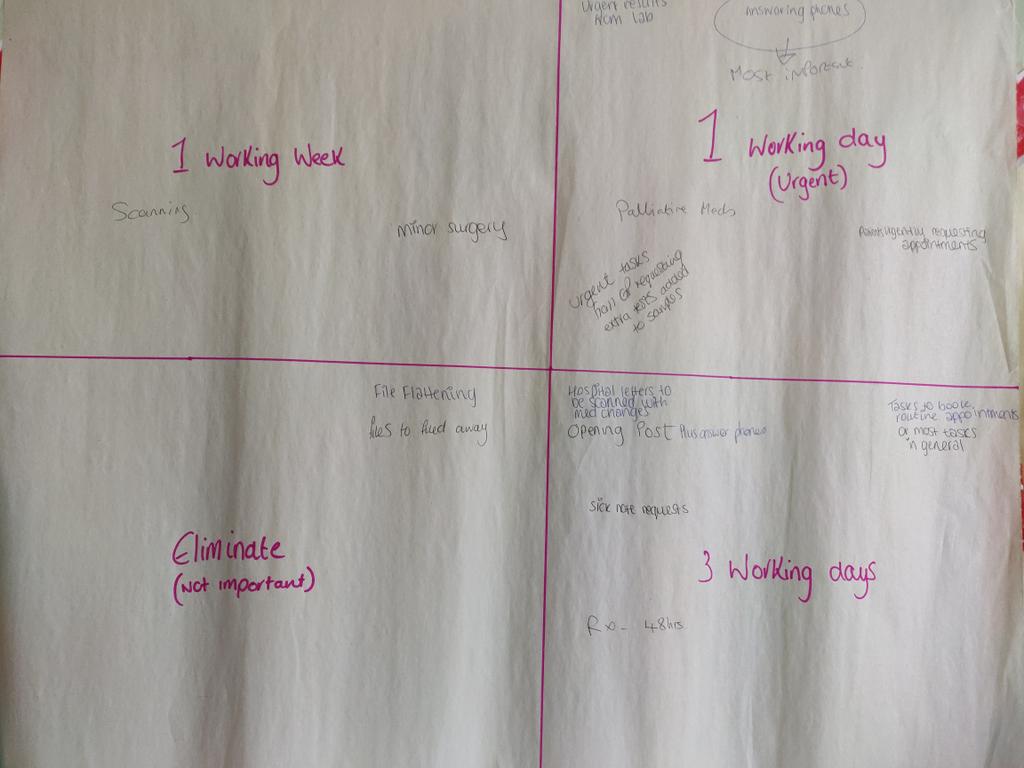 Urgent results
from lab
answering phones
Most important.
1 Working Week
Scanning
minor surgery
1 Working day
(Urgent)
Palliative Meds
urgently requesting
appointments
Urgent tasks
requesting
extra tests added
to samples
File Flattening
files to filed away
Eliminate
(Not important)
Hospital letters to
be scanned with
med changes
Opening Post Plus answer phones
Tasks to book
routine appointments
or most tasks
in general
Sick note requests
3 Working days
Rx - 48hrs